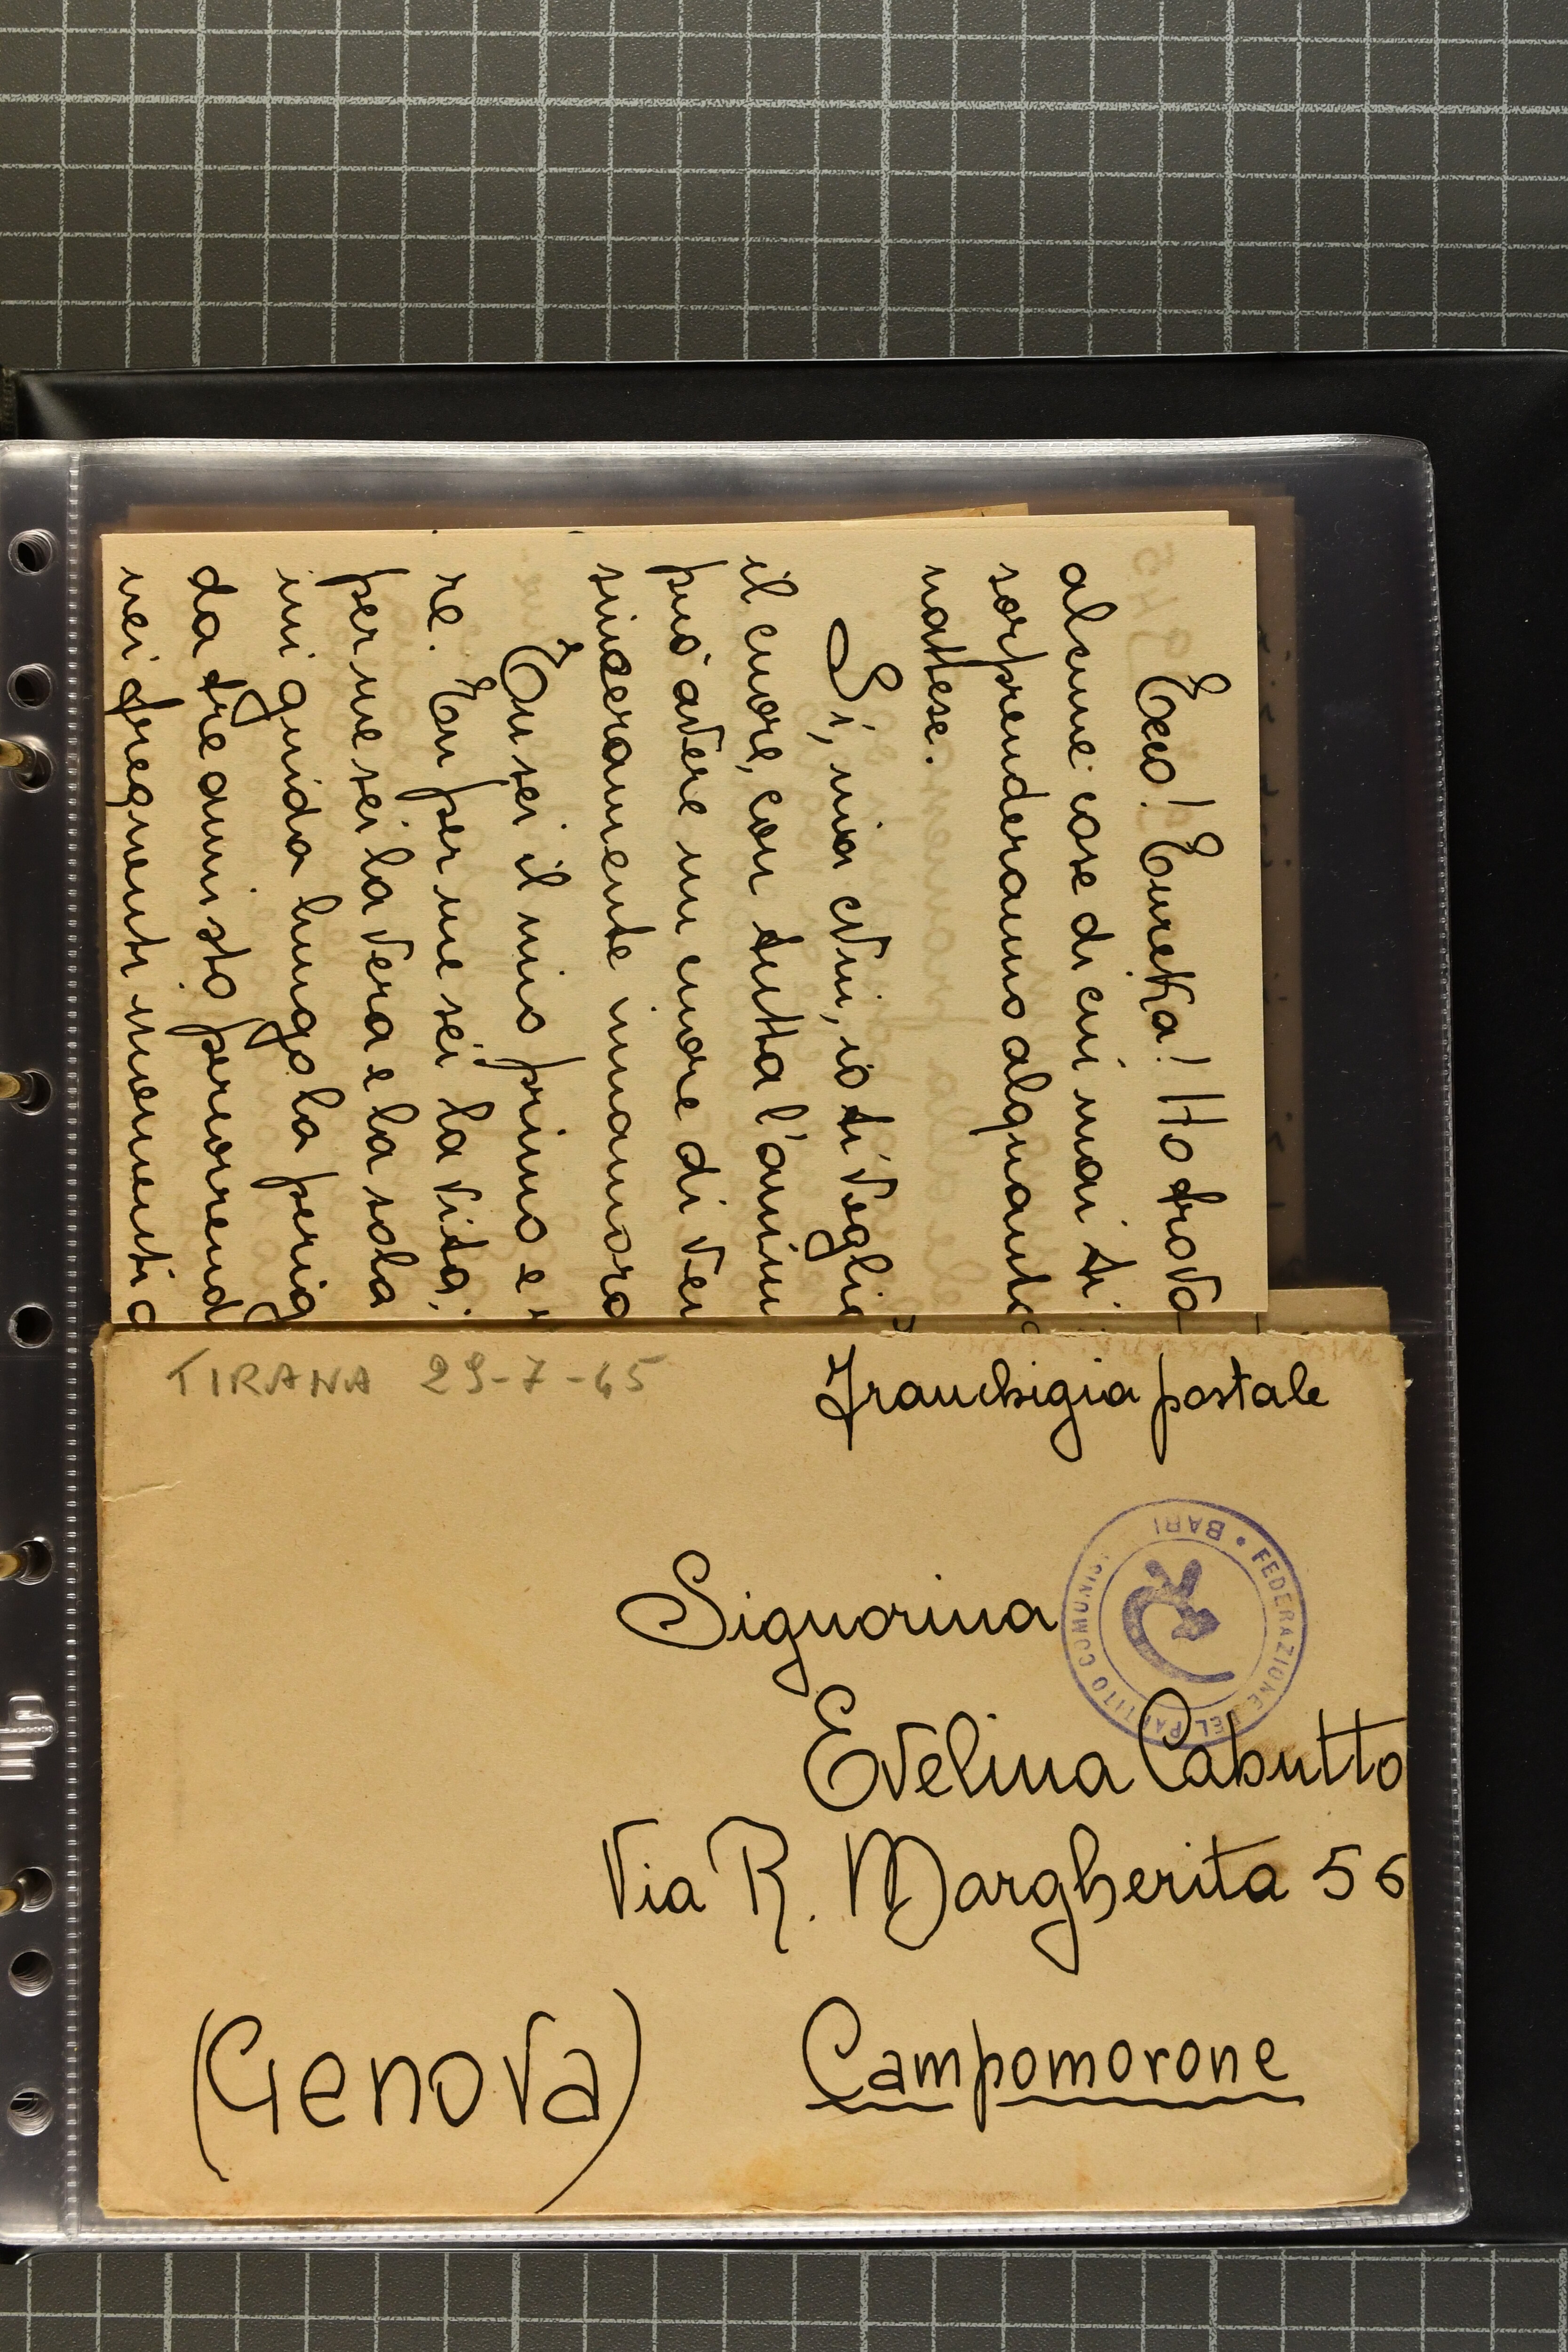 Ecco! Eureka! Ho trova
alcune cose di cui mai ti
sorprenderanno alquanto
nattese.
Sì, mia Evi, io ti voglio
il cuore, con tutta l'anim
può avere un cuore di ven
sinceramente innamora
Tu sei il mio primo e
re. Tu per me sei la vita;
per me sei la vera e la sola
mi guida lungo la perig
da tre anni sto percorrend
nei frequenti momenti d
TIRANA 29-7-45
Franchigia postale
FEDERAZIONE DEL PARTITO COMUNIS
BARI
Signorina
Evelina Cabutto
Via R. Margherita 56
Campomorone
(Genova)